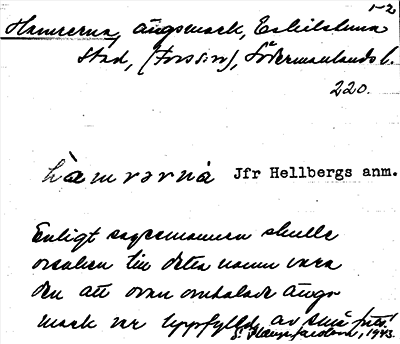 1-2
Hamrerna, ängsmark, Eskilstuna
Stad, (Forssin), Södermanlands l.
220.
hàmrərnà Jfr Hellbergs anm.
Enligt sagesmannen skulle
orsaken till detta namn vara
den att ovan omtalade ängs
mark var uppfylld av små
1943.